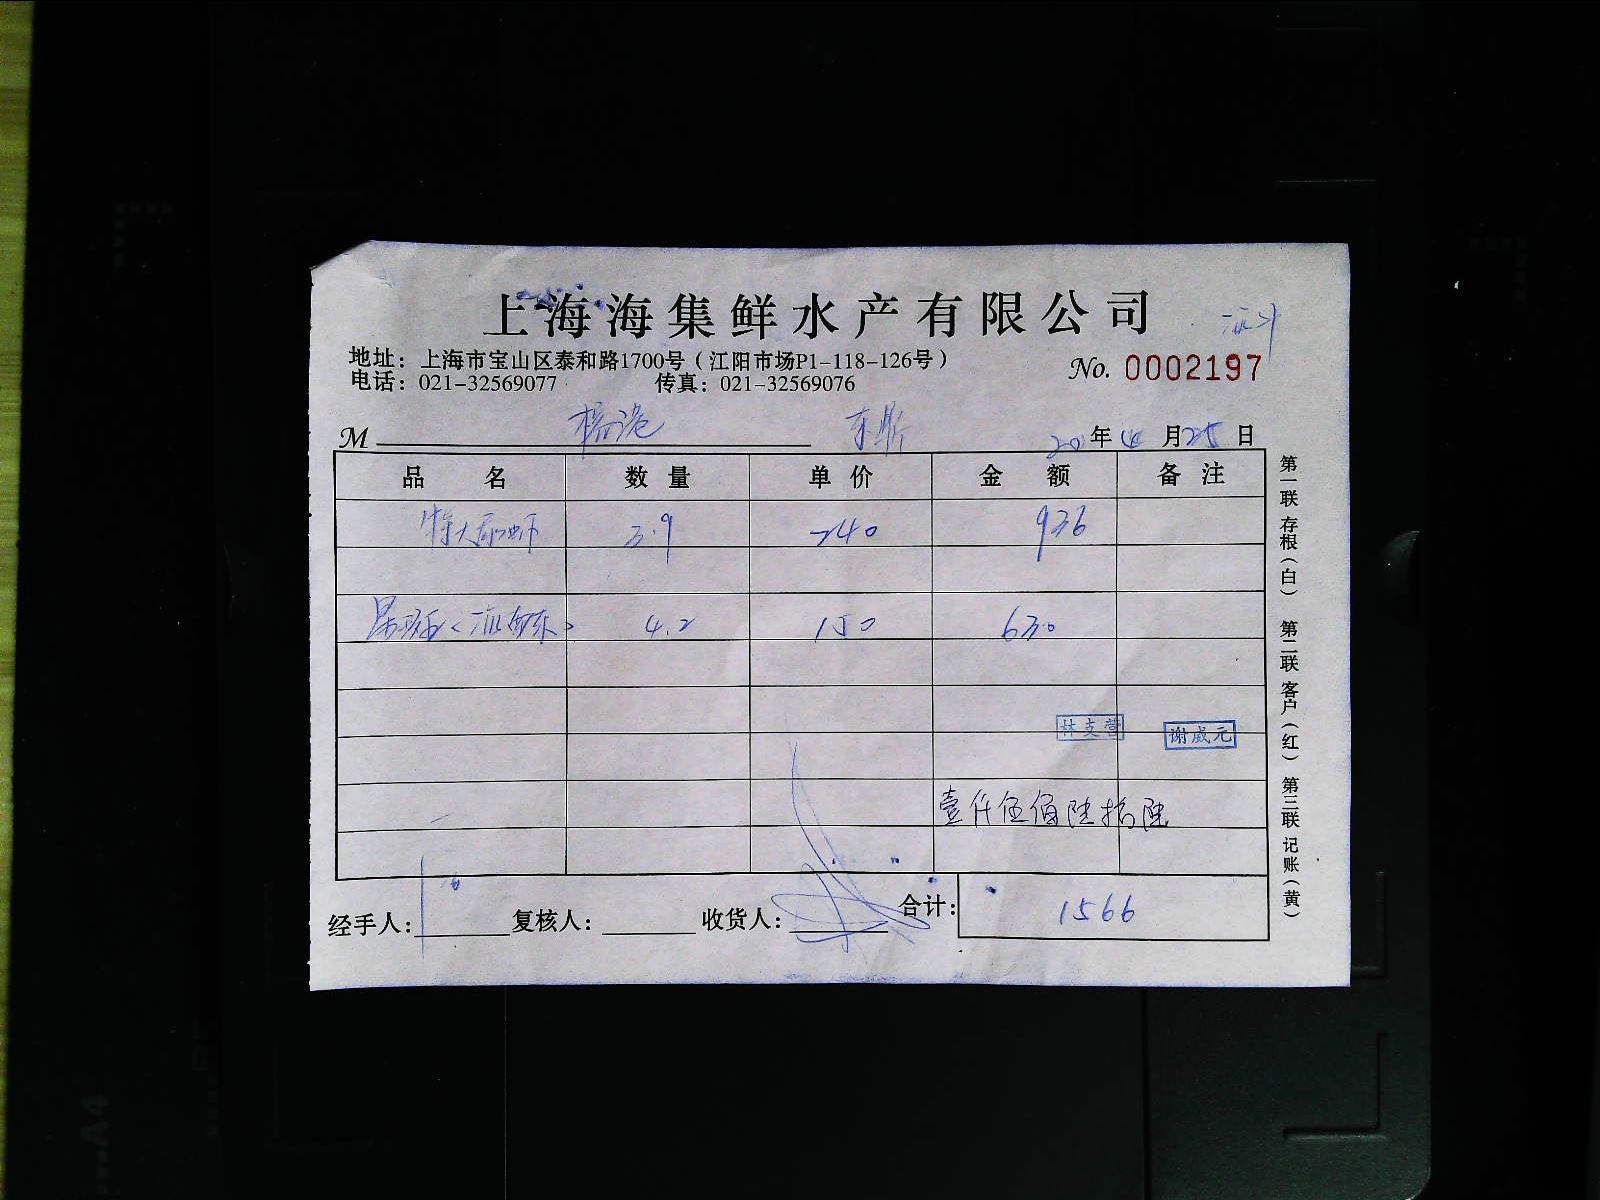 上海海集鲜水产有限公司
地址：上海市宝山区泰和路1700号（江阳市场P1-118-126号）
No. 0002197
电话：021-32569077 传真：021-32569076
M
年 月25日
品名 数量 单价 金额 备注
特大 3.9 240 936
4.2 150 630
林支营 谢威元
壹仟伍佰陆拾陆
经手人： 复核人： 收货人： 合计： 1566
第一联 存根（白） 第二联 客户（红） 第三联 记账（黄）